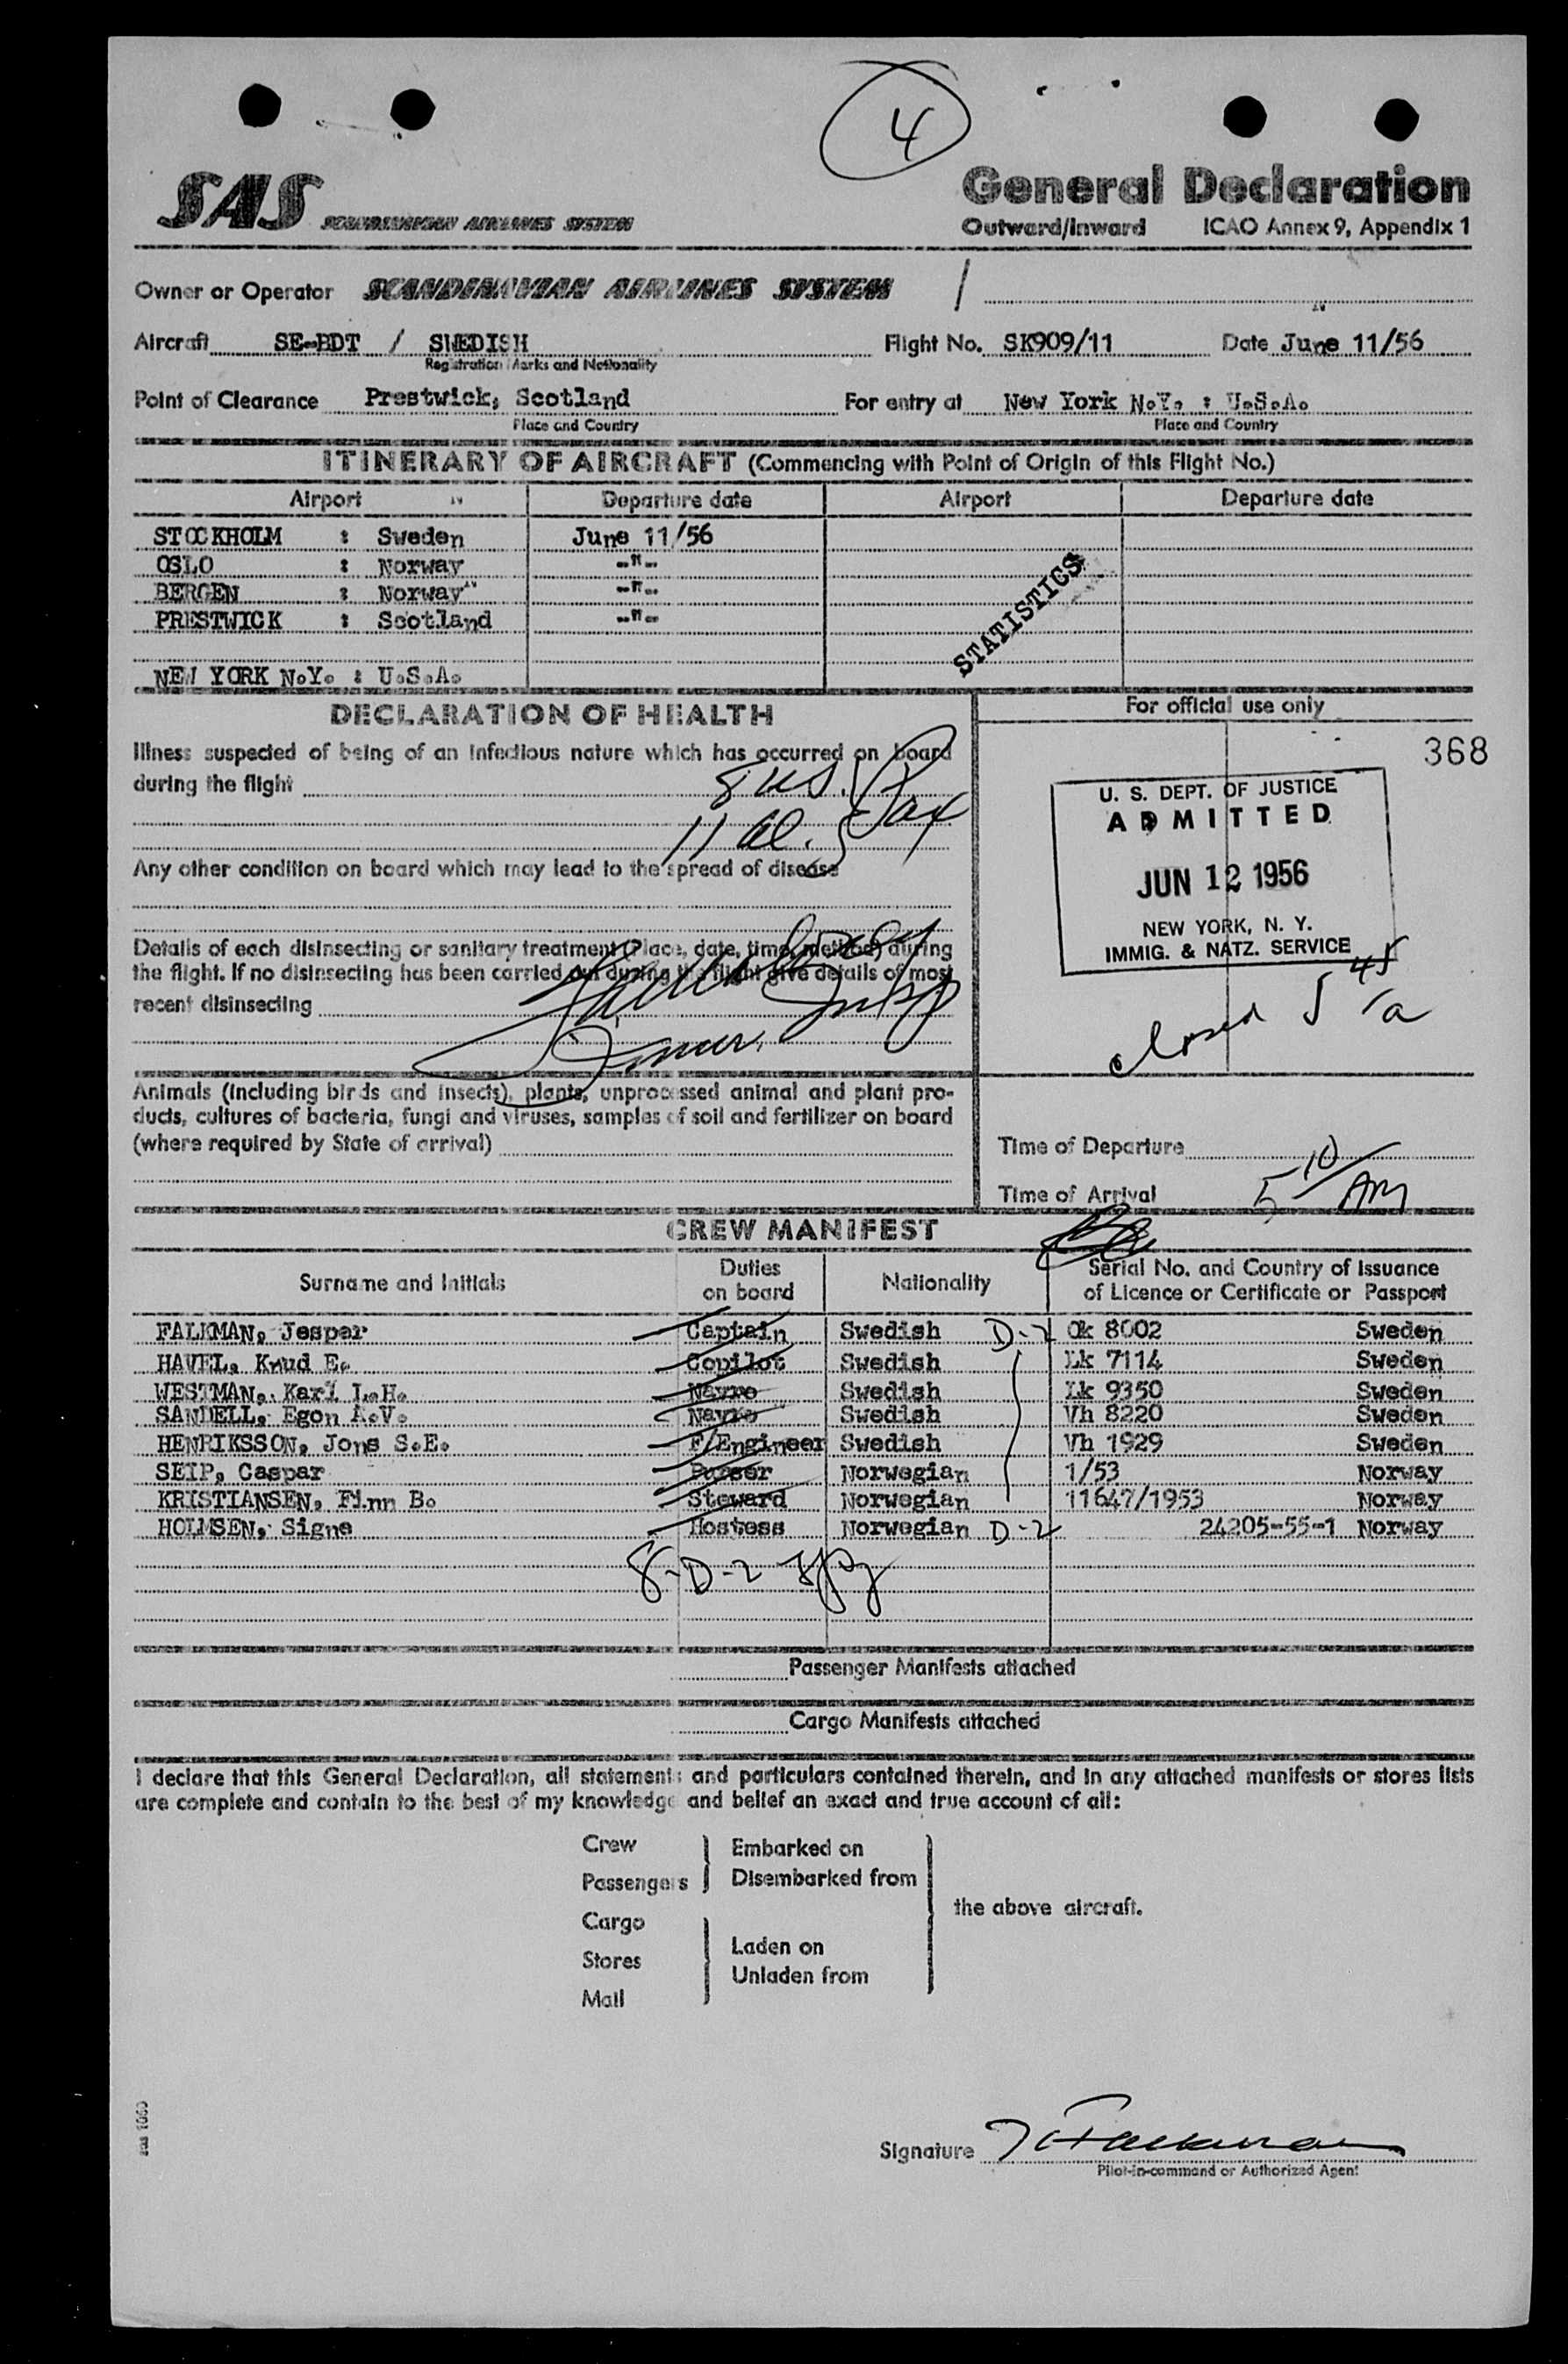 4
SAS SCANDINAVIAN AIRLINES SYSTEM
General Declaration
Outward/Inward ICAO Annex 9, Appendix 1
Owner or Operator SCANDINAVIAN AIRLINES SYSTEM /
Aircraft SE-BDT / SWEDISH Flight No. SK909/11 Date June 11/56
Registration Marks and Nationality
Point of Clearance Prestwick, Scotland For entry at New York N.Y. : U.S.A.
Place and Country Place and Country
ITINERARY OF AIRCRAFT (Commencing with Point of Origin of this Flight No.)
Airport Departure date Airport Departure date
STOCKHOLM : Sweden June 11/56
OSLO : Norway -"-
BERGEN : Norway -"-
PRESTWICK : Scotland -"-
STATISTICS
NEW YORK N.Y. : U.S.A.
DECLARATION OF HEALTH
For official use only
368
Illness suspected of being of an infectious nature which has occurred on board
during the flight
8 US. } Pax
11 al.
Any other condition on board which may lead to the spread of disease
U. S. DEPT. OF JUSTICE
ADMITTED
JUN 12 1956
NEW YORK, N. Y.
IMMIG. & NATZ. SERVICE
Details of each disinsecting or sanitary treatment (Place, date, time, method) during
the flight. If no disinsecting has been carried out during the flight give details of most
recent disinsecting
closed 5 45/a
Animals (including birds and insects), plants, unprocessed animal and plant pro-
ducts, cultures of bacteria, fungi and viruses, samples of soil and fertilizer on board
(where required by State of arrival)
Time of Departure
Time of Arrival 5 10/AM
CREW MANIFEST
Surname and Initials Duties on board Nationality Serial No. and Country of Issuance of Licence or Certificate or Passport
FALKMAN, Jesper Captain Swedish D-2 Ok 8002 Sweden
HAVEL, Knud E. Copilot Swedish Lk 7114 Sweden
WESTMAN, Karl L.H. Navro Swedish Lk 9350 Sweden
SANDELL, Egon A.V. Navro Swedish Vh 8220 Sweden
HENRIKSSON, Jons S.E. F/Engineer Swedish Vh 1929 Sweden
SEIP, Caspar Purser Norwegian 1/53 Norway
KRISTIANSEN, Finn B. Steward Norwegian 11647/1953 Norway
HOLMSEN, Signe Hostess Norwegian D-2 24205-55-1 Norway
8-D-2
Passenger Manifests attached
Cargo Manifests attached
I declare that this General Declaration, all statements and particulars contained therein, and in any attached manifests or stores lists
are complete and contain to the best of my knowledge and belief an exact and true account of all:
Crew Embarked on
Passengers Disembarked from
the above aircraft.
Cargo
Stores Laden on
Unladen from
Mail
sas 1060
Signature J Falkman
Pilot-in-command or Authorized Agent